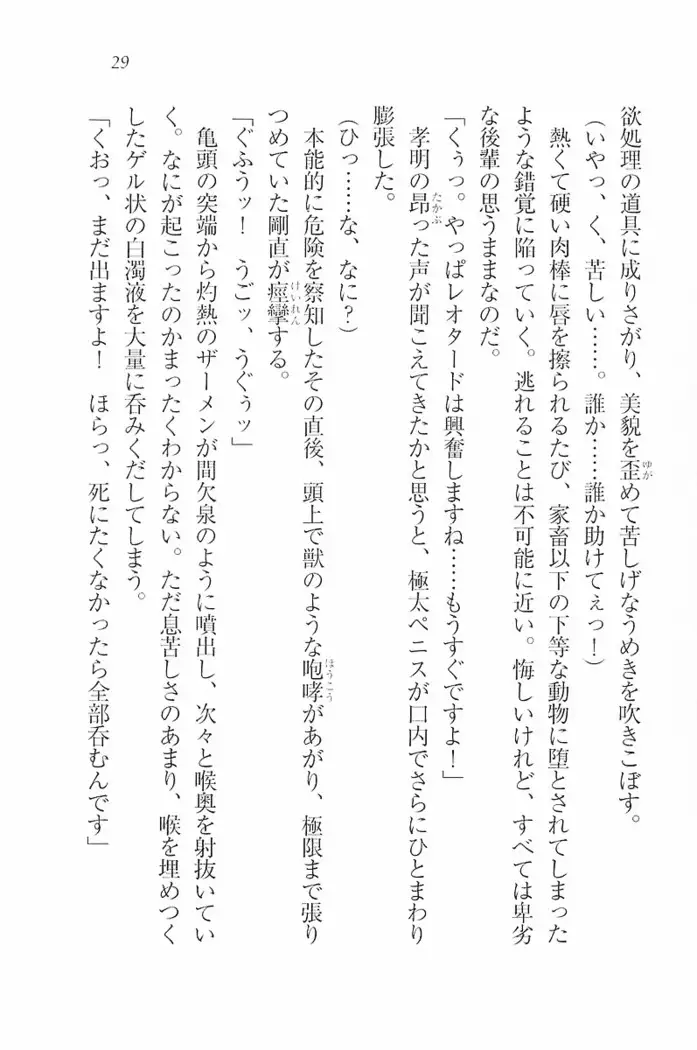 29
欲処理の道具に成りさがり、美貌を歪(ゆが)めて苦しげなうめきを吹きこぼす。
(いやっ、く、苦しい……。誰か……誰か助けてぇっ！)
熱くて硬い肉棒に唇を擦られるたび、家畜以下の下等な動物に堕とされてしまった
ような錯覚に陥っていく。逃れることは不可能に近い。悔しいけれど、すべては卑劣
な後輩の思うままなのだ。
「くぅっ。やっぱレオタードは興奮しますね……もうすぐですよ！」
孝明の昂(たかぶ)った声が聞こえてきたかと思うと、極太ペニスが口内でさらにひとまわり
膨張した。
(ひっ……な、なに？)
本能的に危険を察知したその直後、頭上で獣のような咆哮(ほうこう)があがり、極限まで張り
つめていた剛直が痙攣(けいれん)する。
「ぐふうッ！　うごッ、うぐぅッ」
亀頭の突端から灼熱のザーメンが間欠泉のように噴出し、次々と喉奥を射抜いてい
く。なにが起こったのかまったくわからない。ただ息苦しさのあまり、喉を埋めつく
したゲル状の白濁液を大量に呑みくだしてしまう。
「くおっ、まだ出ますよ！　ほらっ、死にたくなかったら全部呑むんです」